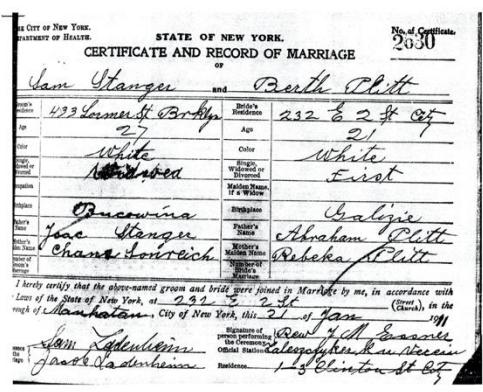 THE CITY OF NEW YORK.
DEPARTMENT OF HEALTH.
STATE OF NEW YORK.
No. of Certificate.
2630
CERTIFICATE AND RECORD OF MARRIAGE
OF
Sam Stanger and Berth Plitt
Groom's Residence 433 Lorimer St Brklyn Bride's Residence 232 E 2 St City
Age 27 Age 21
Color White Color White
Single, Widowed or Divorced Widowed Single, Widowed or Divorced First
Occupation Maiden Name, if a Widow
Birthplace Bucowina Birthplace Galizie
Father's Name Isac Stanger Father's Name Abraham Plitt
Mother's Maiden Name Chane Mother's Maiden Name Rebeka Plitt
Number of Groom's Marriage Number of Bride's Marriage
I hereby certify that the above-named groom and bride were joined in Marriage by me, in accordance with
Laws of the State of New York, at 232 E 2 St (Street Church), in the
Manhatan, City of New York, this 21 of Jan 1911
Sam Ladenheim Signature of person performing the Ceremony, Rev
Jacob Ladenheim Official Station
Residence, Clinton St City